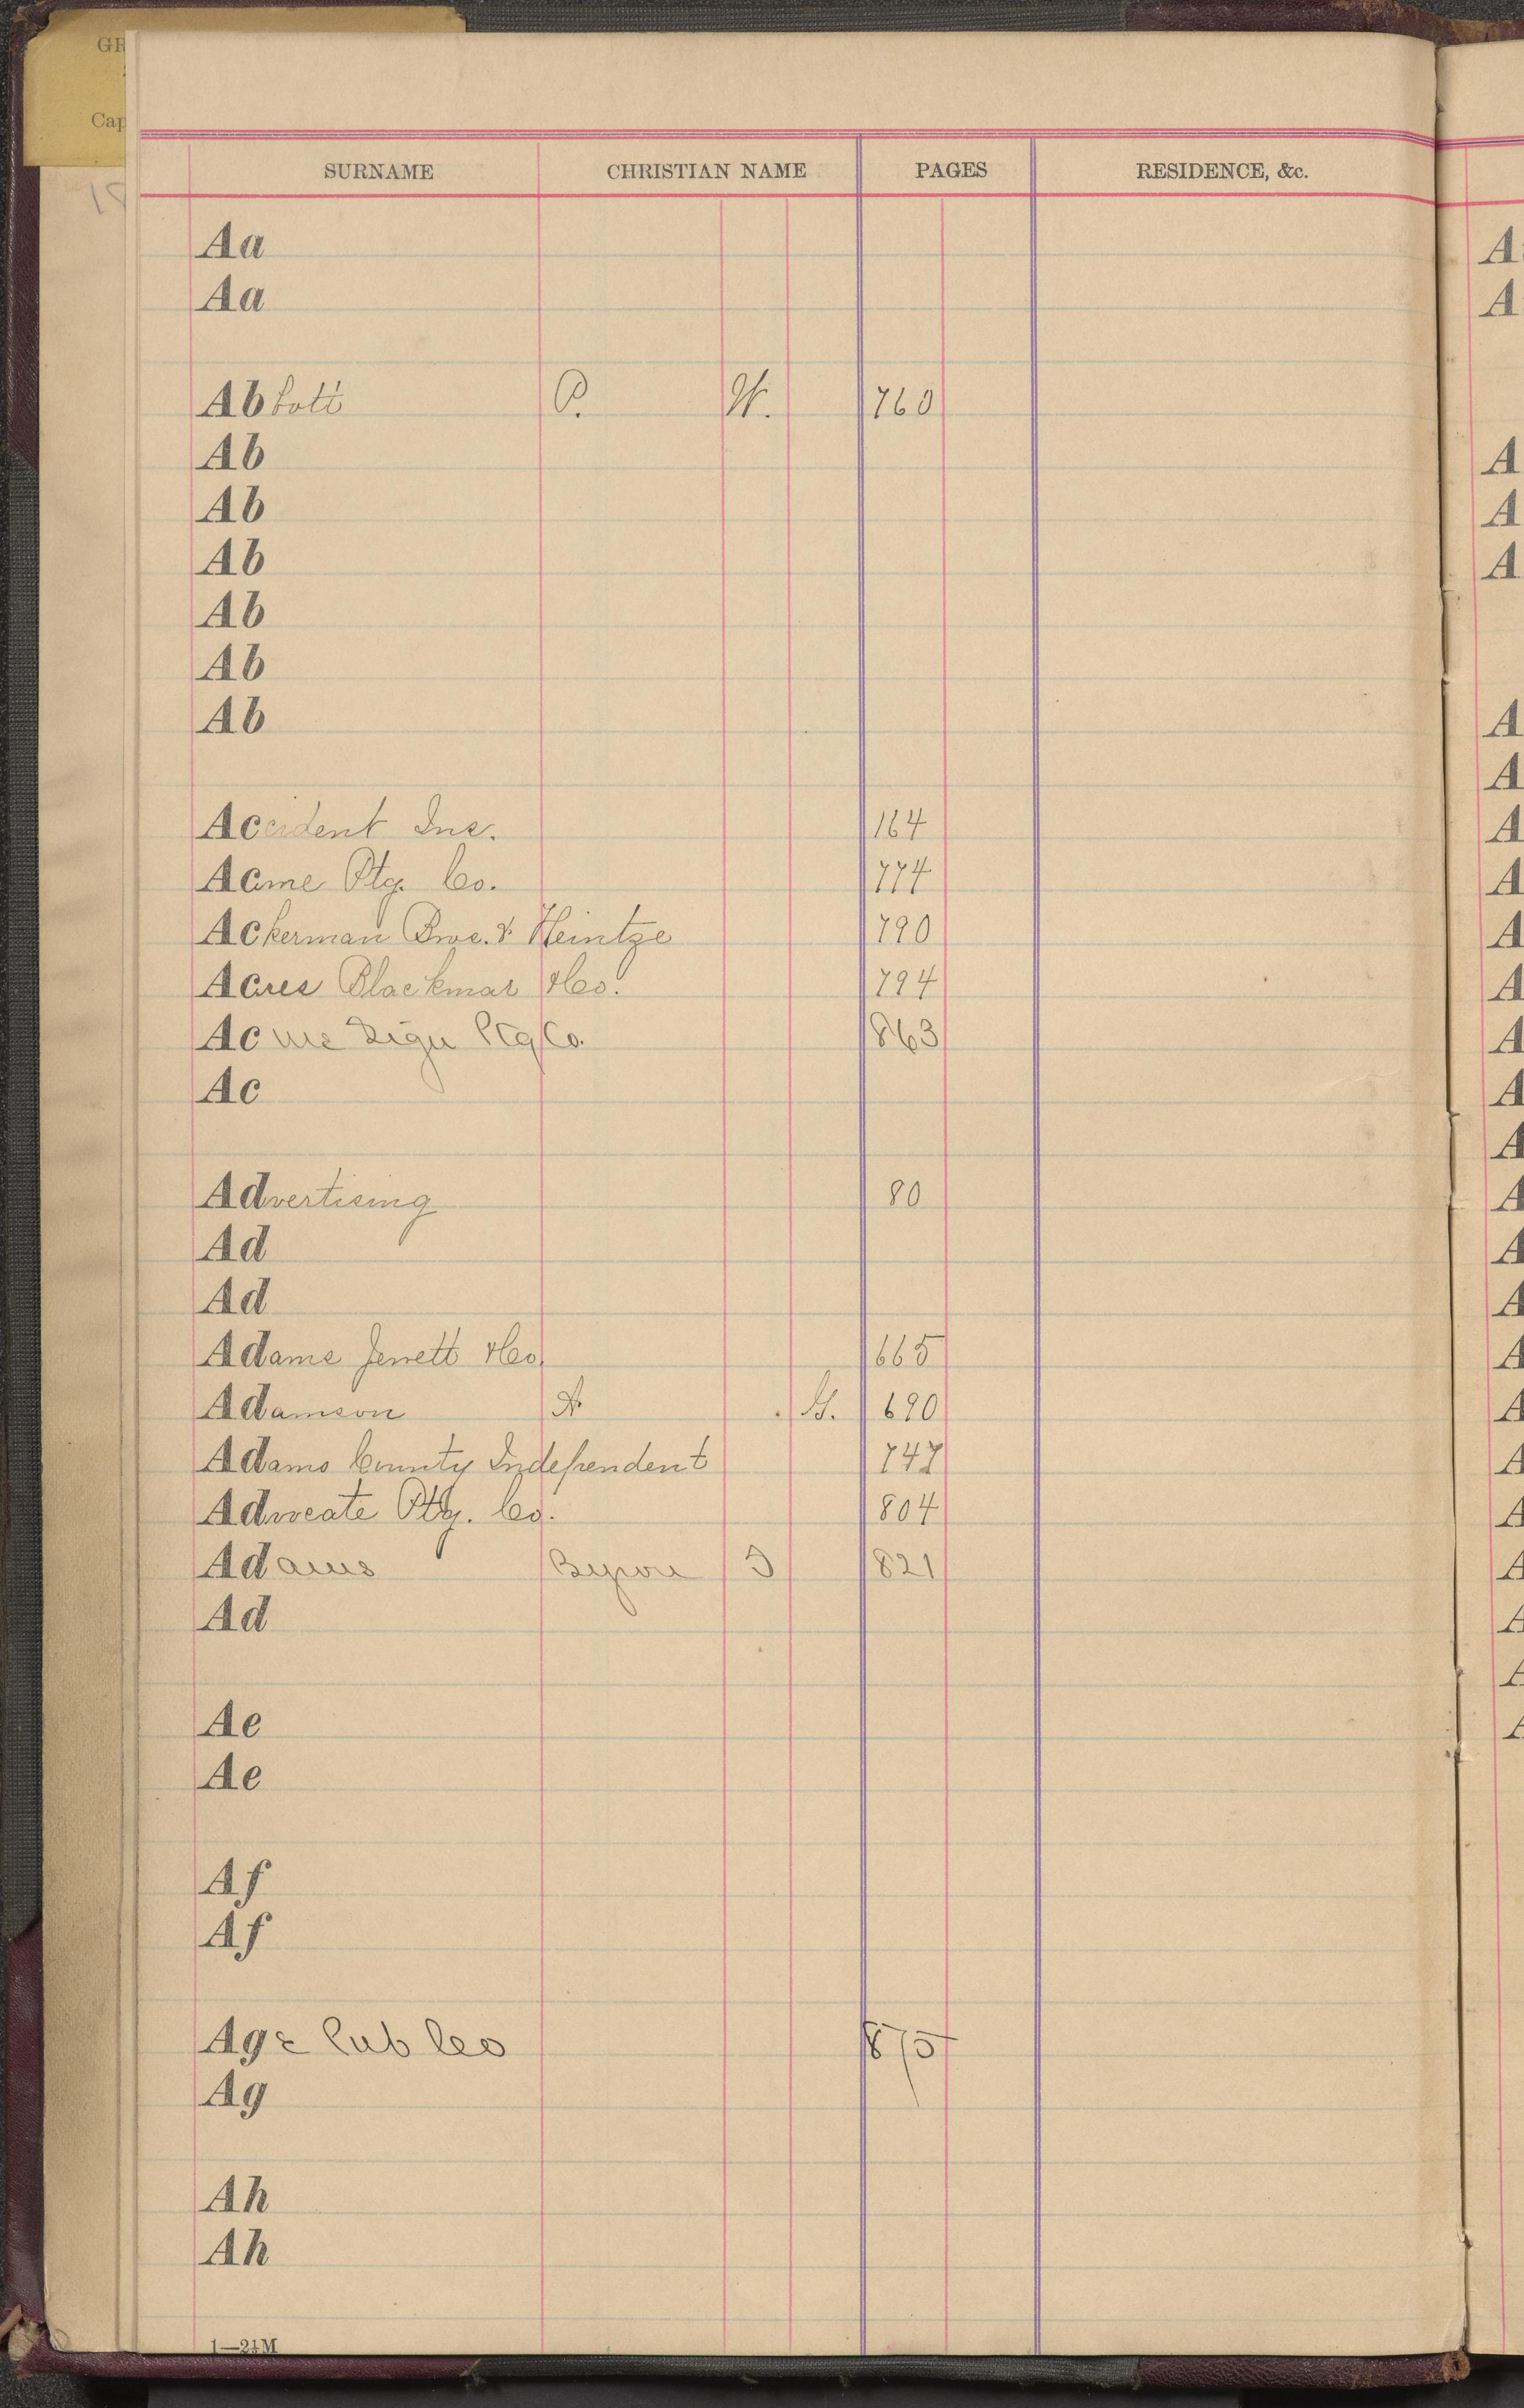 GR
Cap
SURNAME CHRISTIAN NAME PAGES RESIDENCE, &c.
Aa
Aa
Abbott P. W. 760
Ab
Ab
Ab
Ab
Ab
Ab
Accident Ins. 164
Acme Ptg. Co. 774
Ackerman Bros. & Heintze 790
Acres Blackmar & Co. 794
Acme Sign Ptg Co. 863
Ac
Advertising 80
Ad
Ad
Adams Jewett & Co. 665
Adamson A. G. 690
Adams County Independent 747
Advocate Ptg. Co. 804
Adams Byron 821
Ad
Ae
Ae
Af
Af
Age Pub Co 875
Ag
Ah
Ah
1—2½M